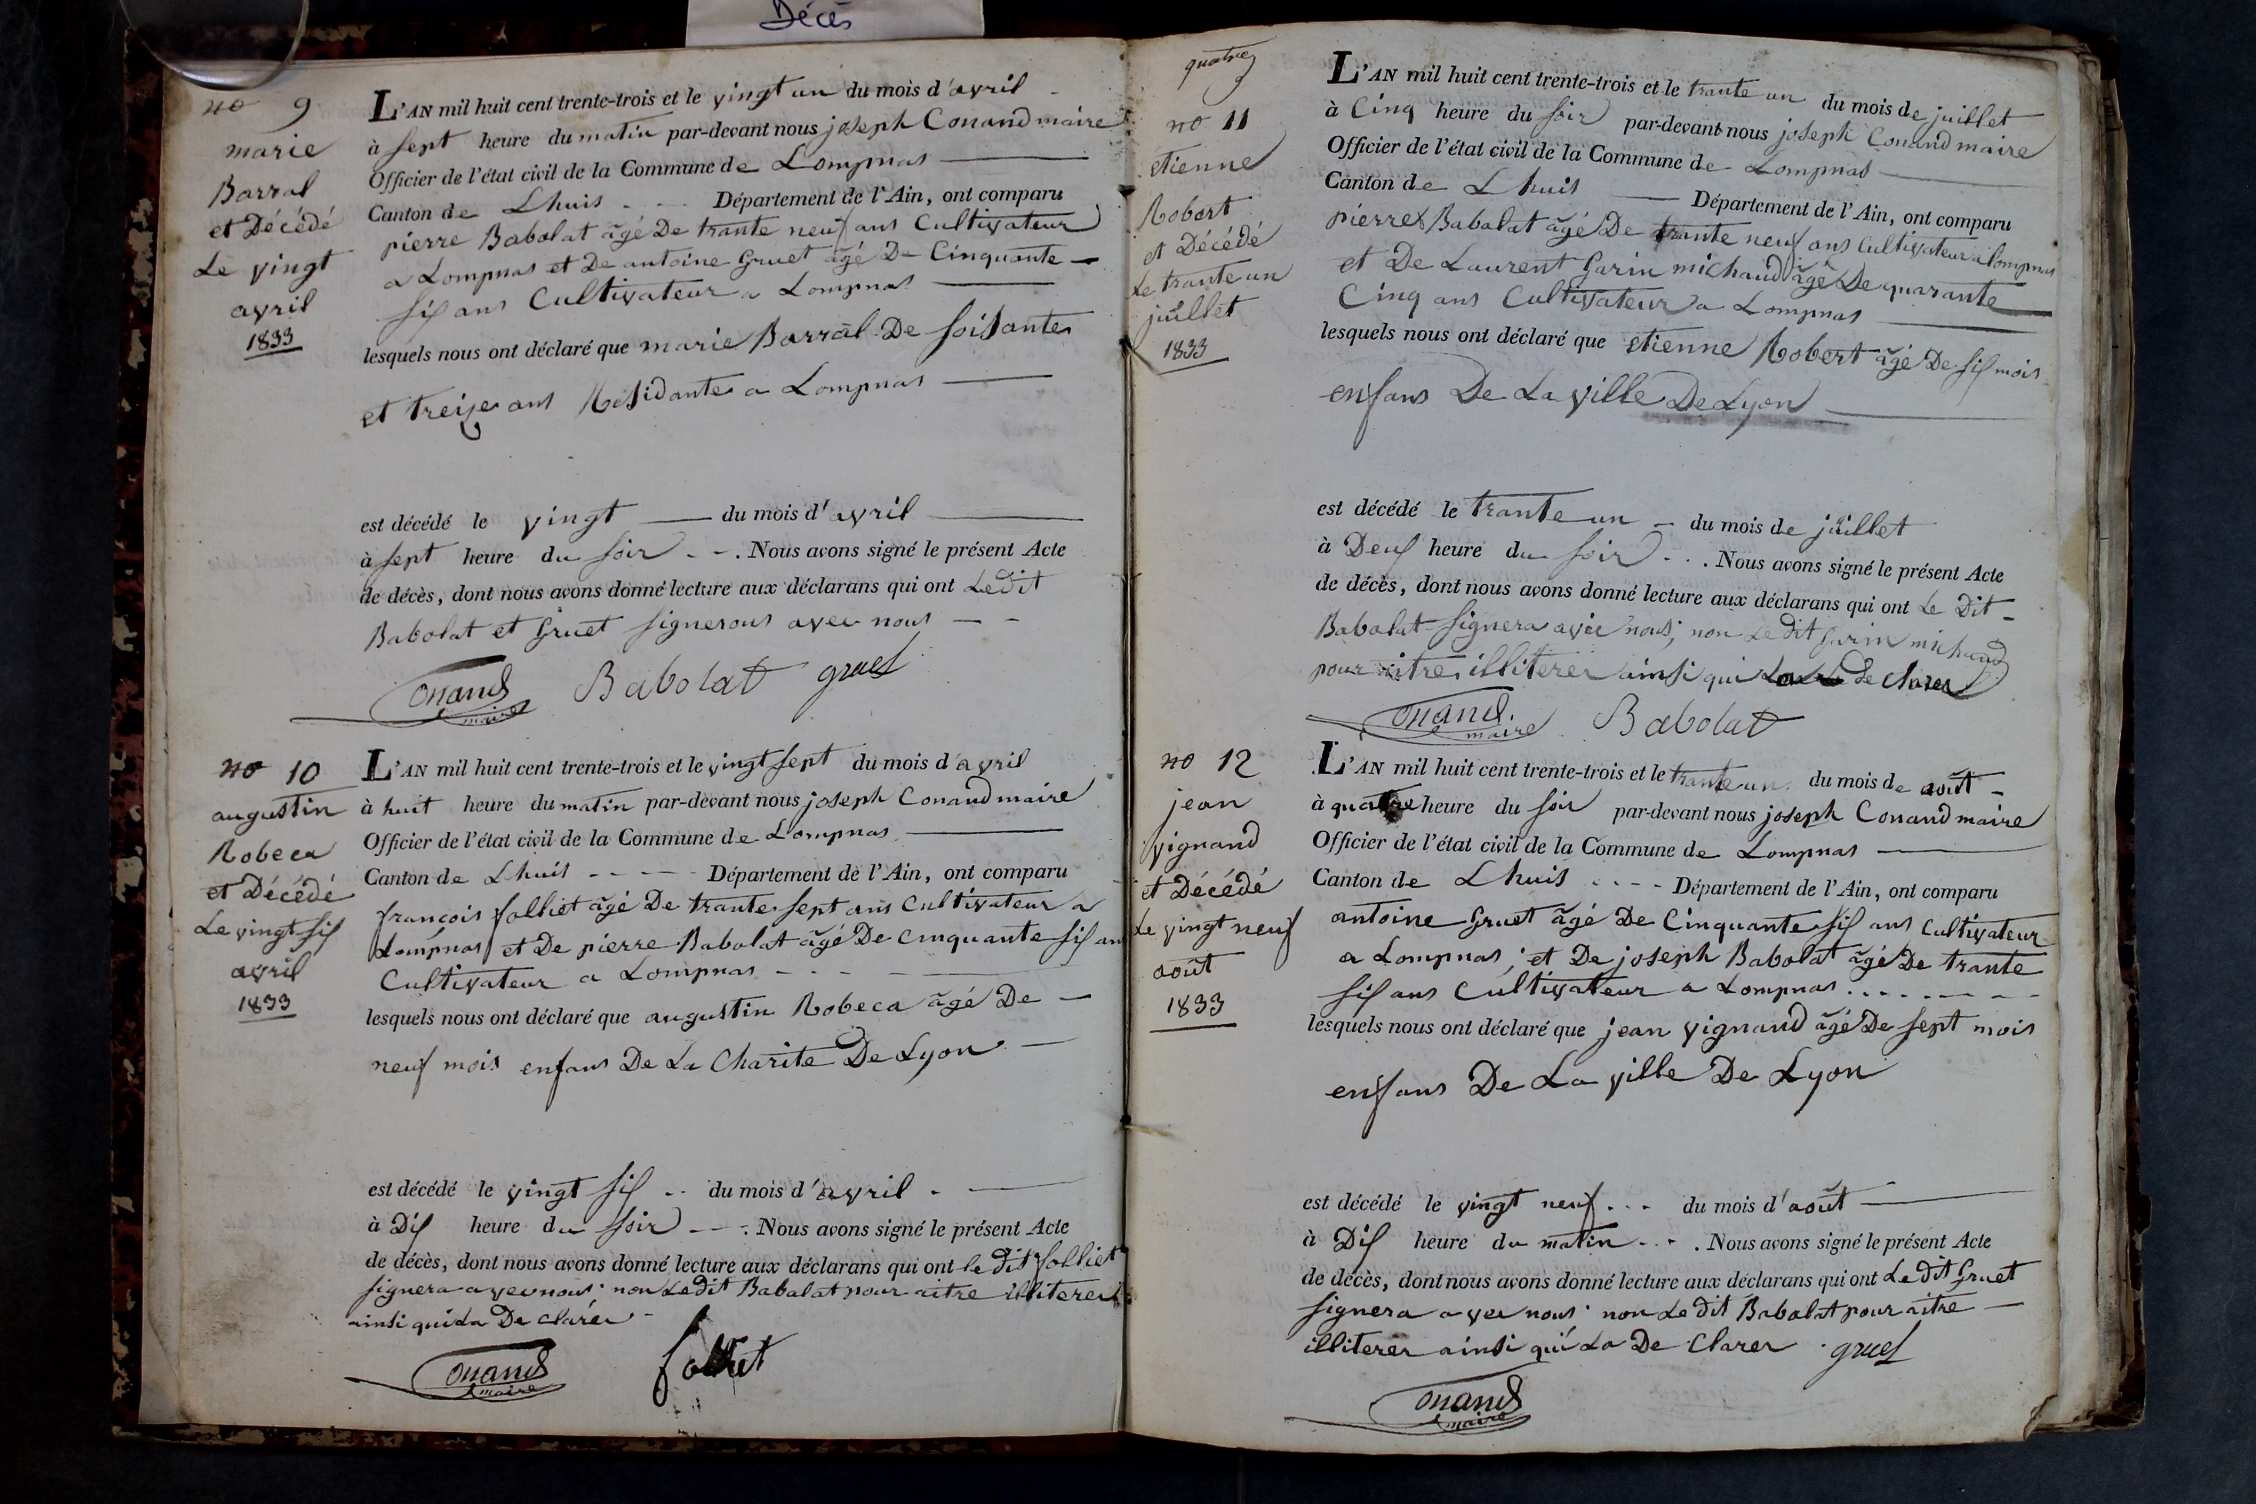 Décés
no 9
marie
Barral
et Décédé
Le vingt
avril
1833
L'AN mil huit cent trente-trois et le vingt un du mois d'avril
à sept heure du matin par-devant nous joseph Conand maire
Officier de l'état civil de la Commune de Lompnas
Canton de Lhuis Département de l'Ain, ont comparu
pierre Babolat âgé De trante neuf ans Cultivateur
a Lompnas et De antoine Gruet âgé De Cinquante
six ans Cultivateur a Lompnas
lesquels nous ont déclaré que marie Barral De soisante
et treize ans Residante a Lompnas
est décédé le vingt du mois d'avril
à sept heure du soir. Nous avons signé le présent Acte
de décès, dont nous avons donné lecture aux déclarans qui ont Ledit
Babolat et Gruet signerous avec nous
Conand maire Babolat gruet
no 10
augustin
Robeca
et Décédé
Le vingt six
avril
1833
L'AN mil huit cent trente-trois et le vingt sept du mois d'avril
à huit heure du matin par-devant nous joseph Conand maire
Officier de l'état civil de la Commune de Lompnas
Canton de Lhuis Département de l'Ain, ont comparu
françois folliet âgé De trante sept ans Cultivateur a
Lompnas et De pierre Babolat âgé De cinquante six ans
Cultivateur a Lompnas
lesquels nous ont déclaré que augustin Robeca âgé De
neuf mois enfans De La Charite De Lyon
est décédé le vingt six du mois d'avril
à Dix heure du soir. Nous avons signé le présent Acte
de décès, dont nous avons donné lecture aux déclarans qui ont le dit folliet
signera avec nous non Ledit Babalat pour aitre illiterer
ainsi qui La De clarér
Conand maire folliet
quatre
no 11
etienne
Robert
et Décédé
Le trante un
juillet
1833
L'AN mil huit cent trente-trois et le trante un du mois de juillet
à Cinq heure du soir par-devant nous joseph Conand maire
Officier de l'état civil de la Commune de Lompnas
Canton de Lhuis Département de l'Ain, ont comparu
pierre Babalat âgé De trante neuf ans Cultivateur a lompnas
et De Laurent Garin michaud âgé De quarante
Cinq ans Cultivateur a Lompnas
lesquels nous ont déclaré que etienne Robert âgé De six mois
enfans De La ville De Lyon
est décédé le trante un du mois de juillet
à Deux heure du soir. Nous avons signé le présent Acte
de décès, dont nous avons donné lecture aux déclarans qui ont Le Dit
Babalat signera avec nous, non Le dit garin michaud
pour aitre illiterer ainsi qui La de clarer
Conand maire Babolat
no 12
jean
vignand
et Décédé
Le vingt neuf
août
1833
L'AN mil huit cent trente-trois et le trante un du mois de août
à quatre heure du soir par-devant nous joseph Conand maire
Officier de l'état civil de la Commune de Lompnas
Canton de Lhuis Département de l'Ain, ont comparu
antoine Gruet âgé De Cinquante six ans Cultivateur
a Lompnas, et De joseph Babolat âgé De trante
six ans Cultivateur a Lompnas
lesquels nous ont déclaré que jean vignand âgé De sept mois
enfans De La ville De Lyon
est décédé le vingt neuf du mois d'août
à Dix heure du matin. Nous avons signé le présent Acte
de décès, dont nous avons donné lecture aux déclarans qui ont Le dit Gruet
signera avec nous non Le dit Babolat pour aitre
illiterer ainsi qui La De Clarer gruet
Conand maire